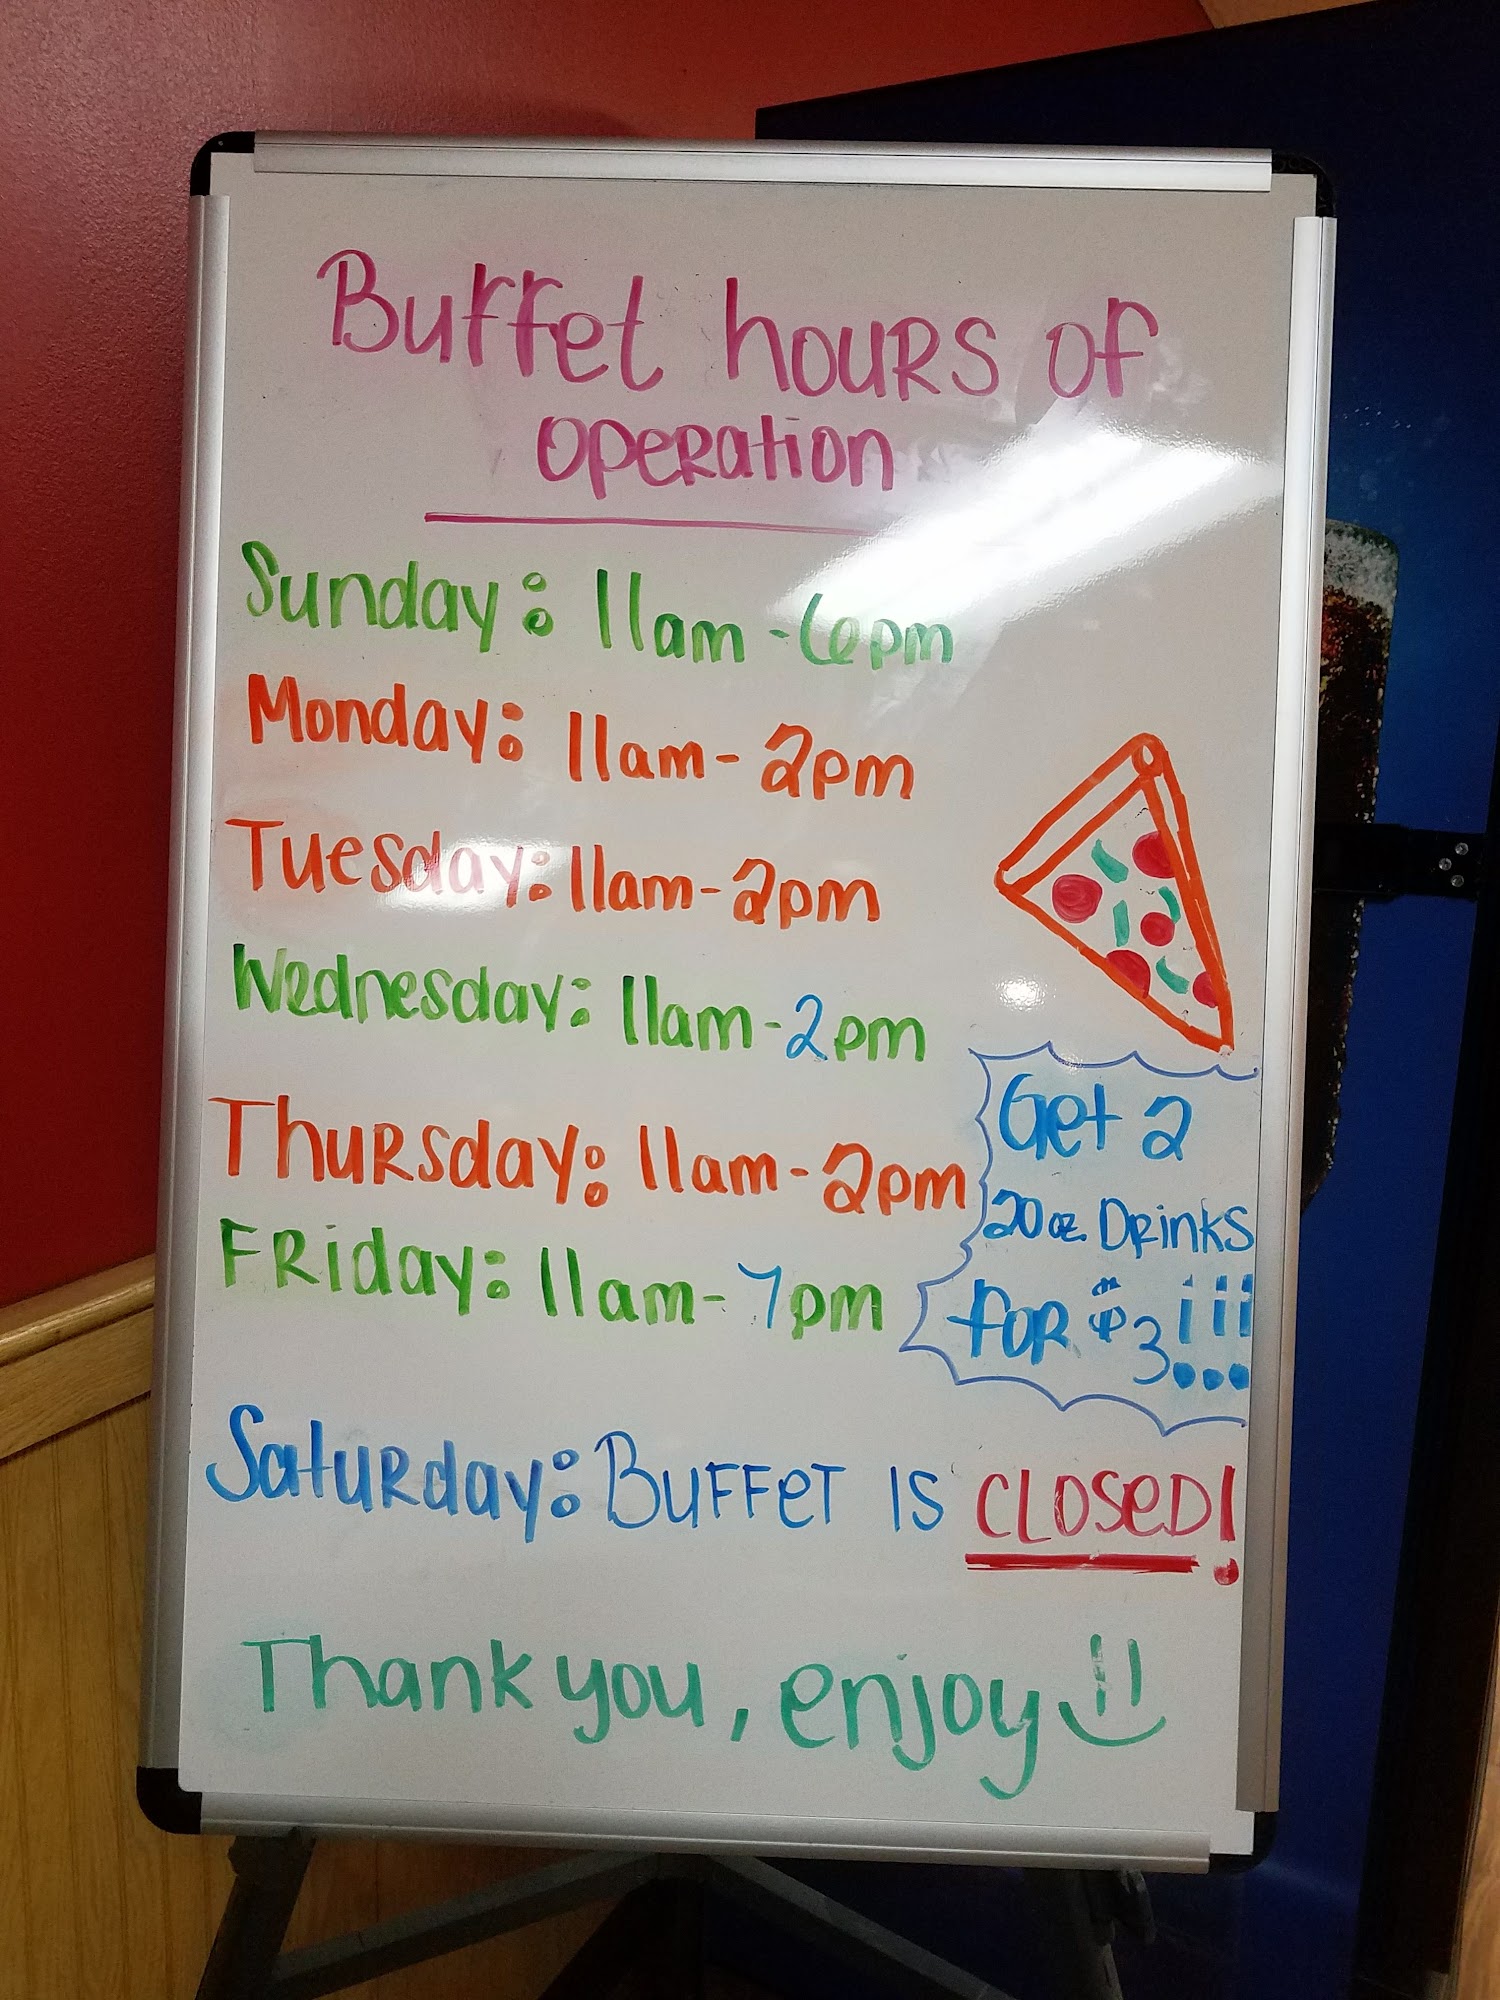 Buffet hours of
operation
Sunday: 11am - 6pm
Monday: 11am - 2pm
Tuesday: 11am - 2pm
Wednesday: 11am - 2pm
Thursday: 11am - 2pm
Friday: 11am - 7pm
Get 2
20 oz. Drinks
for $3!!!
Saturday: Buffet is closed!
Thank you, enjoy